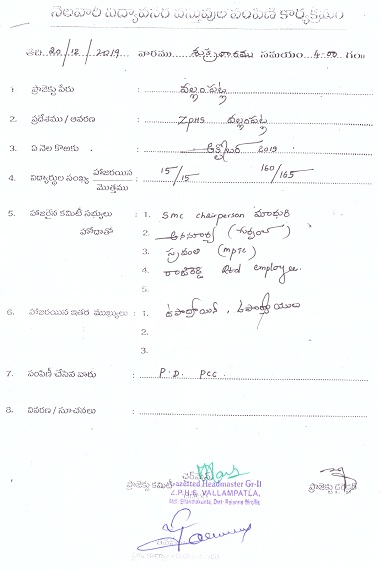 నెలవారీ విద్యావసర వస్తువుల పంపిణీ కార్యక్రమం
తేది 20/12/2019 వారము శుక్రవారము సమయం 4-00 గం॥
1. ప్రాజెక్టు పేరు : వల్లంపట్ల
2. ప్రదేశము / ఆవరణ : ZPHS వల్లంపట్ల
3. ఏ నెల కొఱకు : అక్టోబర్ 2019
4. విద్యార్థుల సంఖ్య హాజరయిన / మొత్తము : 15/15 160/165
5. హాజరైన కమిటీ సభ్యులు : 1. SMC chairperson మాధురి
హోదాతో 2. (సర్పంచ్)
3. స్రవంతి (MPTC)
4. Rtd employee.
5.
6. హాజరయిన ఇతర ముఖ్యులు : 1. ఉపాధ్యాయిని, ఉపాధ్యాయులు
2.
3.
7. పంపిణీ చేసిన వారు : P.D. PCC.
8. వివరణ / సూచనలు :
చైర్మన్
ప్రాజెక్టు కమిటీ
ప్రాజెక్టు డైరెక్టర్
Gazetted Headmaster Gr-II
Z.P.H.S. VALLAMPATLA,
Md. Ellanthakunta, Dist: Rajanna Sircilla